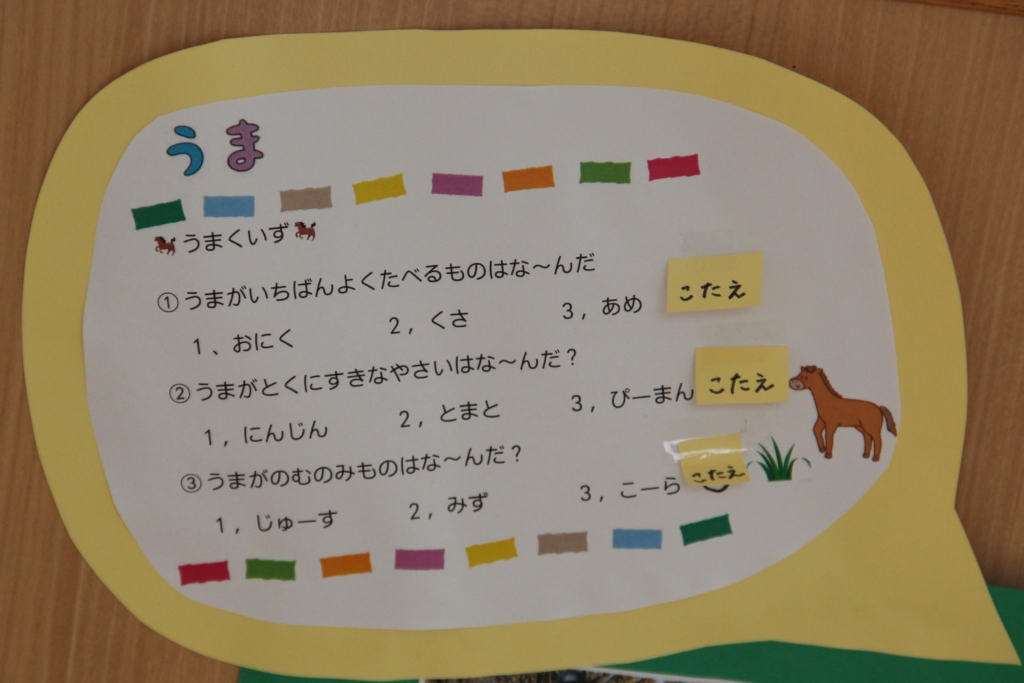 うま
うまくいず
①うまがいちばんよくたべるものはな～んだ
1、おにく 2，くさ 3，あめ
こたえ
②うまがとくにすきなやさいはな～んだ？
1，にんじん 2，とまと 3，ぴーまん
こたえ
③うまがのむのみものはな～んだ？
1，じゅーす 2，みず 3，こーら
こたえ